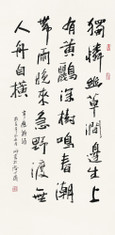 獨憐幽草澗邊生上
有黃鸝深樹鳴春潮
帶雨晚來急野渡無
人舟自橫